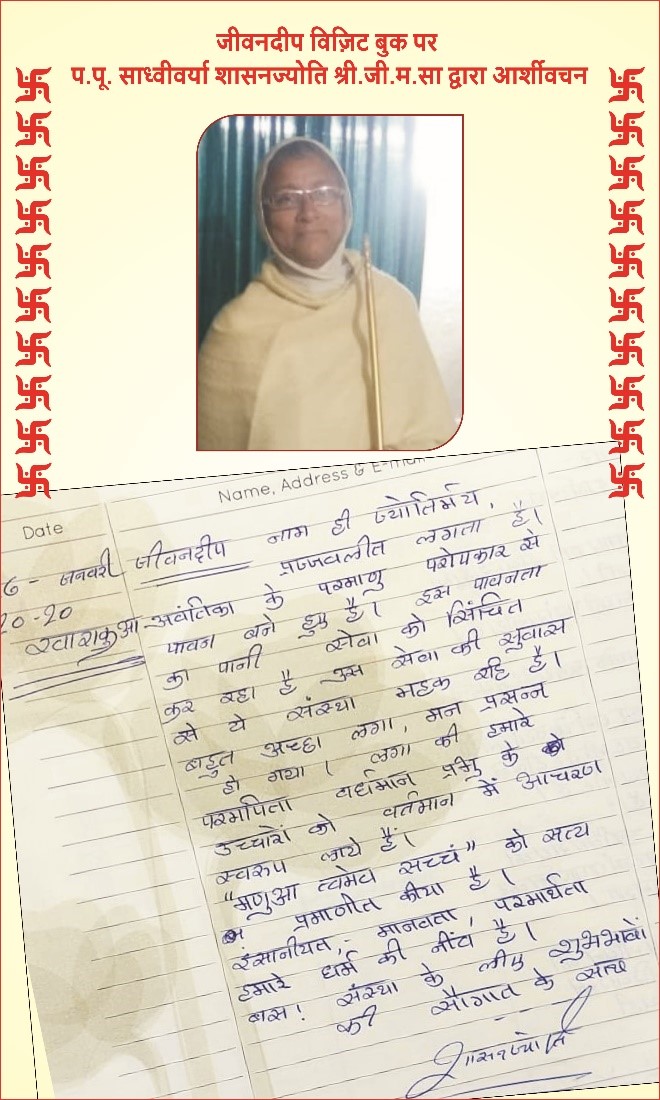 जीवनदीप विज़िट बुक पर
प.पू. साध्वीवर्या शासनज्योति श्री.जी.म.सा द्वारा आर्शीवचन
Name, Address & E-mail
Date
6 - जनवरी
20-20
खाराकुआ
जीवनदीप नाम ही ज्योतिर्मय,
प्रज्जवलीत लगता है।
अवंतिका के परमाणु परोपकार से
पावन बने हुए है। इस पावनता
का पानी सेवा को सिंचित
कर रहा है उस सेवा की सुवास
से ये संस्था महक रहि है।
बहुत अच्छा लगा, मन प्रसन्न
हो गया। लगा की हमारे
परमपिता वर्धमान प्रभु के
उच्चारों को वर्तमान में आचरण
स्वरुप लाये हैं।
“मणुआ त्वमेव सच्चं” को सत्य
प्रमाणीत कीया है।
इंसानीयत,- मानवता, परमार्थता
हमारे धर्म की नींव है।
बस! संस्था के लीए शुभभावों
की सौगात के साथ
शासनज्योति